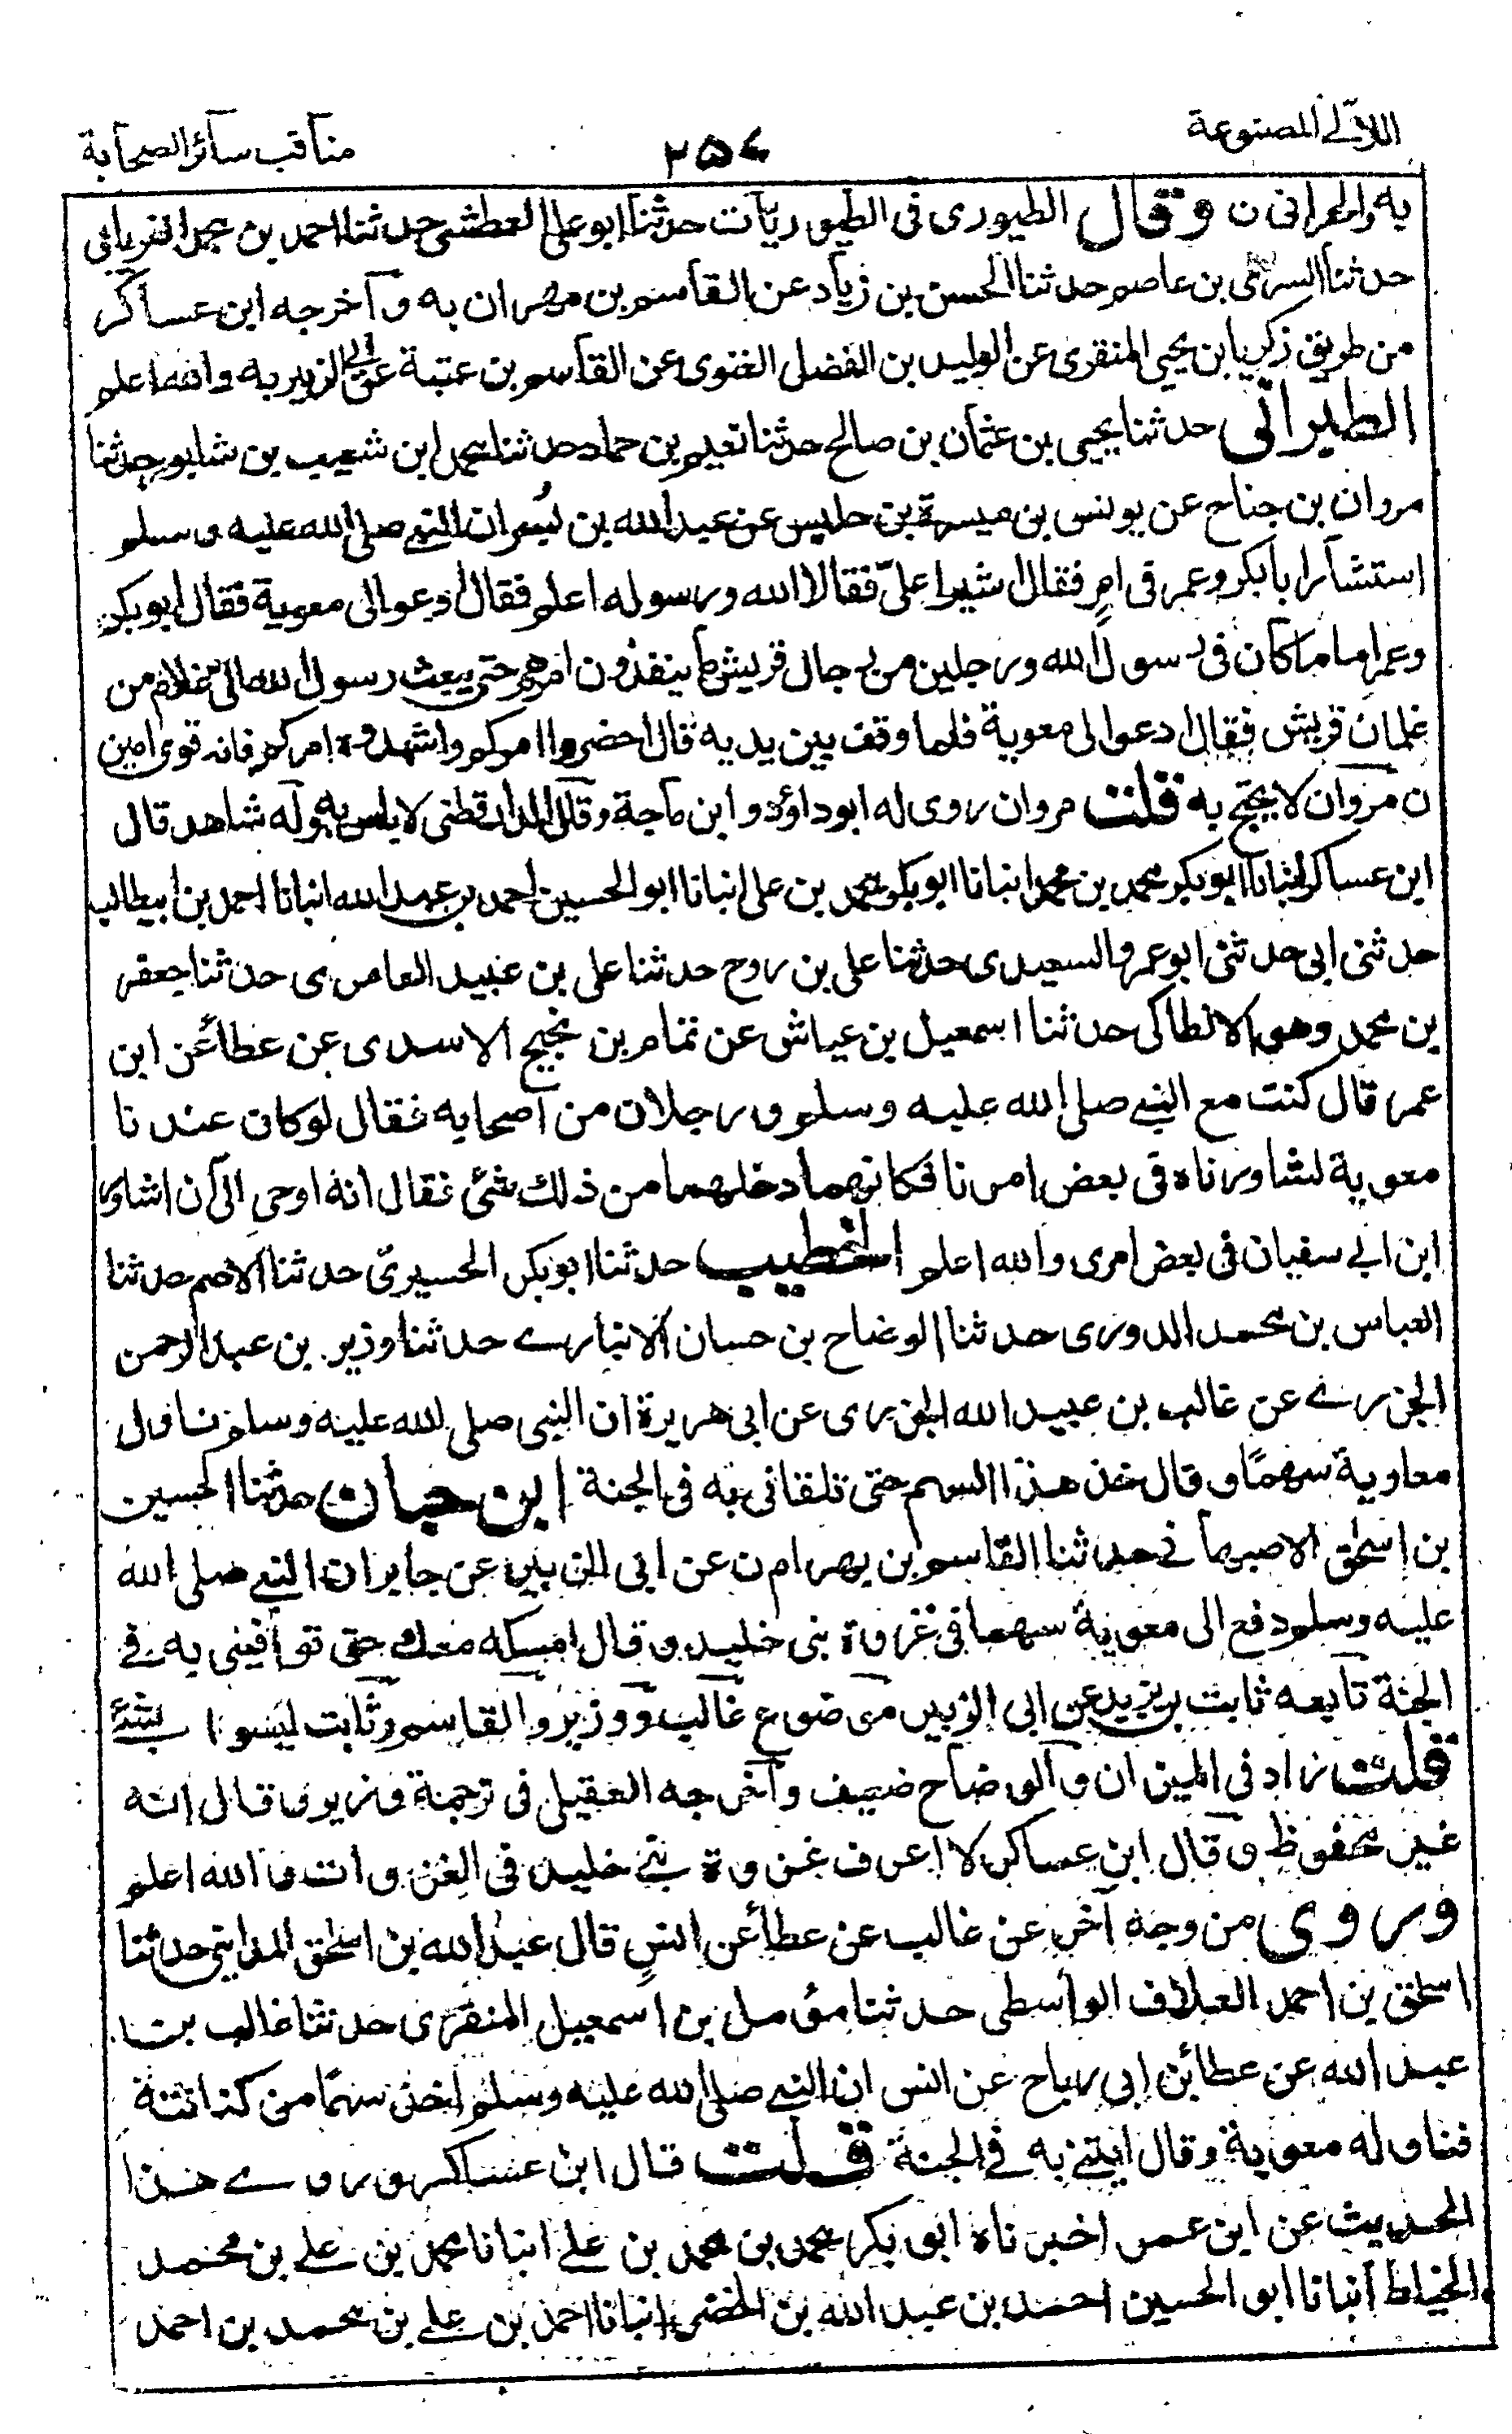 اللآلى المصنوعة
۲۵۷
مناقب سائر الصحابة
به والحرانى ن وقال الطيورى فى الطيوريات حدثنا ابو على العطشى حدثنا احمد بن محمد الفريابى
حدثنا السرى بن عاصم حدثنا الحسن بن زياد عن القاسم بن مهران به وآخرجه ابن عساكر
من طريق زكريا بن يحيى المنقرى عن الوليد بن الفضل الغنوى عن القاسم بن عتبة عن ابى الزبير به والله اعلم
الطبرانى حدثنا يحيى بن عثمان بن صالح حدثنا نعيم بن حماد حدثنا محمد ابن شعيب بن شابور حدثنا
مروان بن جناح عن يونس بن ميسرة بن حلبس عن عبد الله بن بُسر ان النبى صلى الله عليه وسلم
استشار ابا بكر وعمر فى امرٍ فقال اشيرا علىّ فقالا الله ورسوله اعلم فقال ادعوا لى معوية فقال ابو بكر
وعمر اما ما كان فى رسول الله ورجلين من رجال قريش ما ينفذون امرهم حتى يبعث رسول الله الى غلام من
غلمان قريش فقال ادعوا لى معوية فلما وقف بين يديه قال احضروا امركم واشهدوه امركم فانه قوى امين
ن مروان لا يحتج به قلت مروان روى له ابو داؤد و ابن ماجة وقال الدارقطنى لا باس به وله شاهد قال
ابن عساكر انبانا ابو بكر محمد بن محمد انبانا ابو بكر محمد بن على انبانا ابو الحسين احمد بن عبد الله انبانا احمد بن ابيطالب
حدثنى ابى حدثنى ابو عمرو السعيدى حدثنا على بن روح حدثنا على بن عبيد العامرى حدثنا جعفر
بن محمد وهو الانطاكى حدثنا اسمعيل بن عياش عن تمام بن نجيح الاسدى عن عطاء عن ابن
عمر قال كنت مع النبى صلى الله عليه وسلم ورجلان من اصحابه فقال لو كان عندنا
معوية لشاورناه فى بعض امرنا فكانهما دخلهما من ذلك شئ فقال انه اوحى الى ان اشاور
ابن ابى سفيان فى بعض امرى والله اعلم الخطيب حدثنا ابو بكر الحسيرىّ حدثنا الاصم حدثنا
العباس بن محمد الدورى حدثنا الوضاح بن حسان الانبارے حدثنا وزير بن عبد الرحمن
الجزرے عن غالب بن عبيد الله الجزرى عن ابى هريرة ان النبى صلى الله عليه وسلم ناول
معاوية سهمًا وقال خذ هذا السهم حتى تلقانى به فى الجنة ابن حبان حدثنا الحسين
بن اسحٰق الاصبهانے حدثنا القاسم بن بهرام ن عن ابى الزبير عن جابر ان النبى صلى الله
عليه وسلم دفع الى معوية سهما فى غزوة بنى خليد وقال امسكه معك حتى توافينى به فى
الجنة تابعه ثابت بن يزيد عن ابى الزبير موضوع غالب ووزير والقاسم وثابت ليسوا بشئ
قلت زاد فى الميزان والوضاح ضعيف وآخرجه العقيلى فى ترجمة وزير وقال انه
غير محفوظ وقال ابن عساكر لا اعرف غزوة بنے خليد فى الغزوات والله اعلم
وروى من وجه آخر عن غالب عن عطاء عن انسٍ قال عبد الله بن اسحٰق المداينى حدثنا
اسحٰق بن احمد العلاف الواسطى حدثنا مؤمل بن اسمعيل المنقرى حدثنا غالب بن
عبد الله عن عطاء بن ابى رباح عن انس ان النبى صلى الله عليه وسلم اخذ سهمًا من كنانته
فناوله معوية وقال ايتنے به فے الجنة قلت قال ابن عساكر وروے هذا
الحديث عن ابن عمر اخبرناه ابو بكر محمد بن محمد بن علے انبانا محمد بن علے بن محمد
الخياط انبانا ابو الحسين احمد بن عبد الله بن الخضر انبانا احمد بن علے بن محمد بن احمد